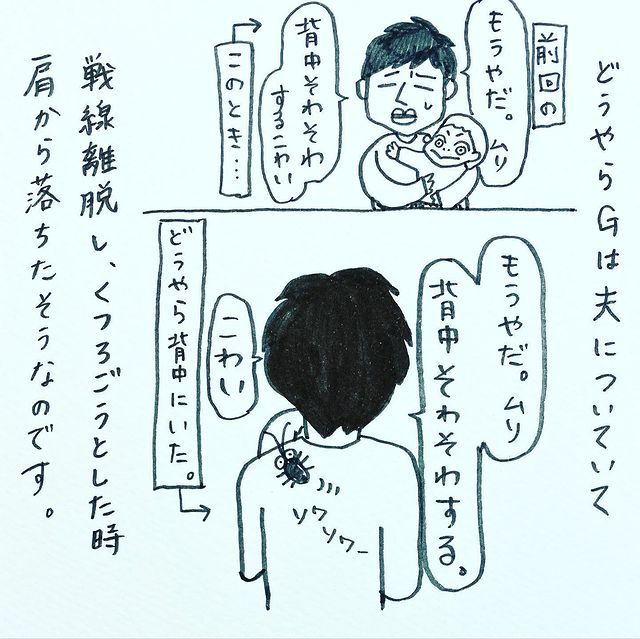 どうやらGは夫についていて
前回の
もうやだ。ムリ
背中そわそわ
するこわい
このとき…
もうやだ。ムリ
背中そわそわする。
こわい
ソワ
ソワー
どうやら背中にいた。
戦線離脱し、くつろごうとした時
肩から落ちたそうなのです。